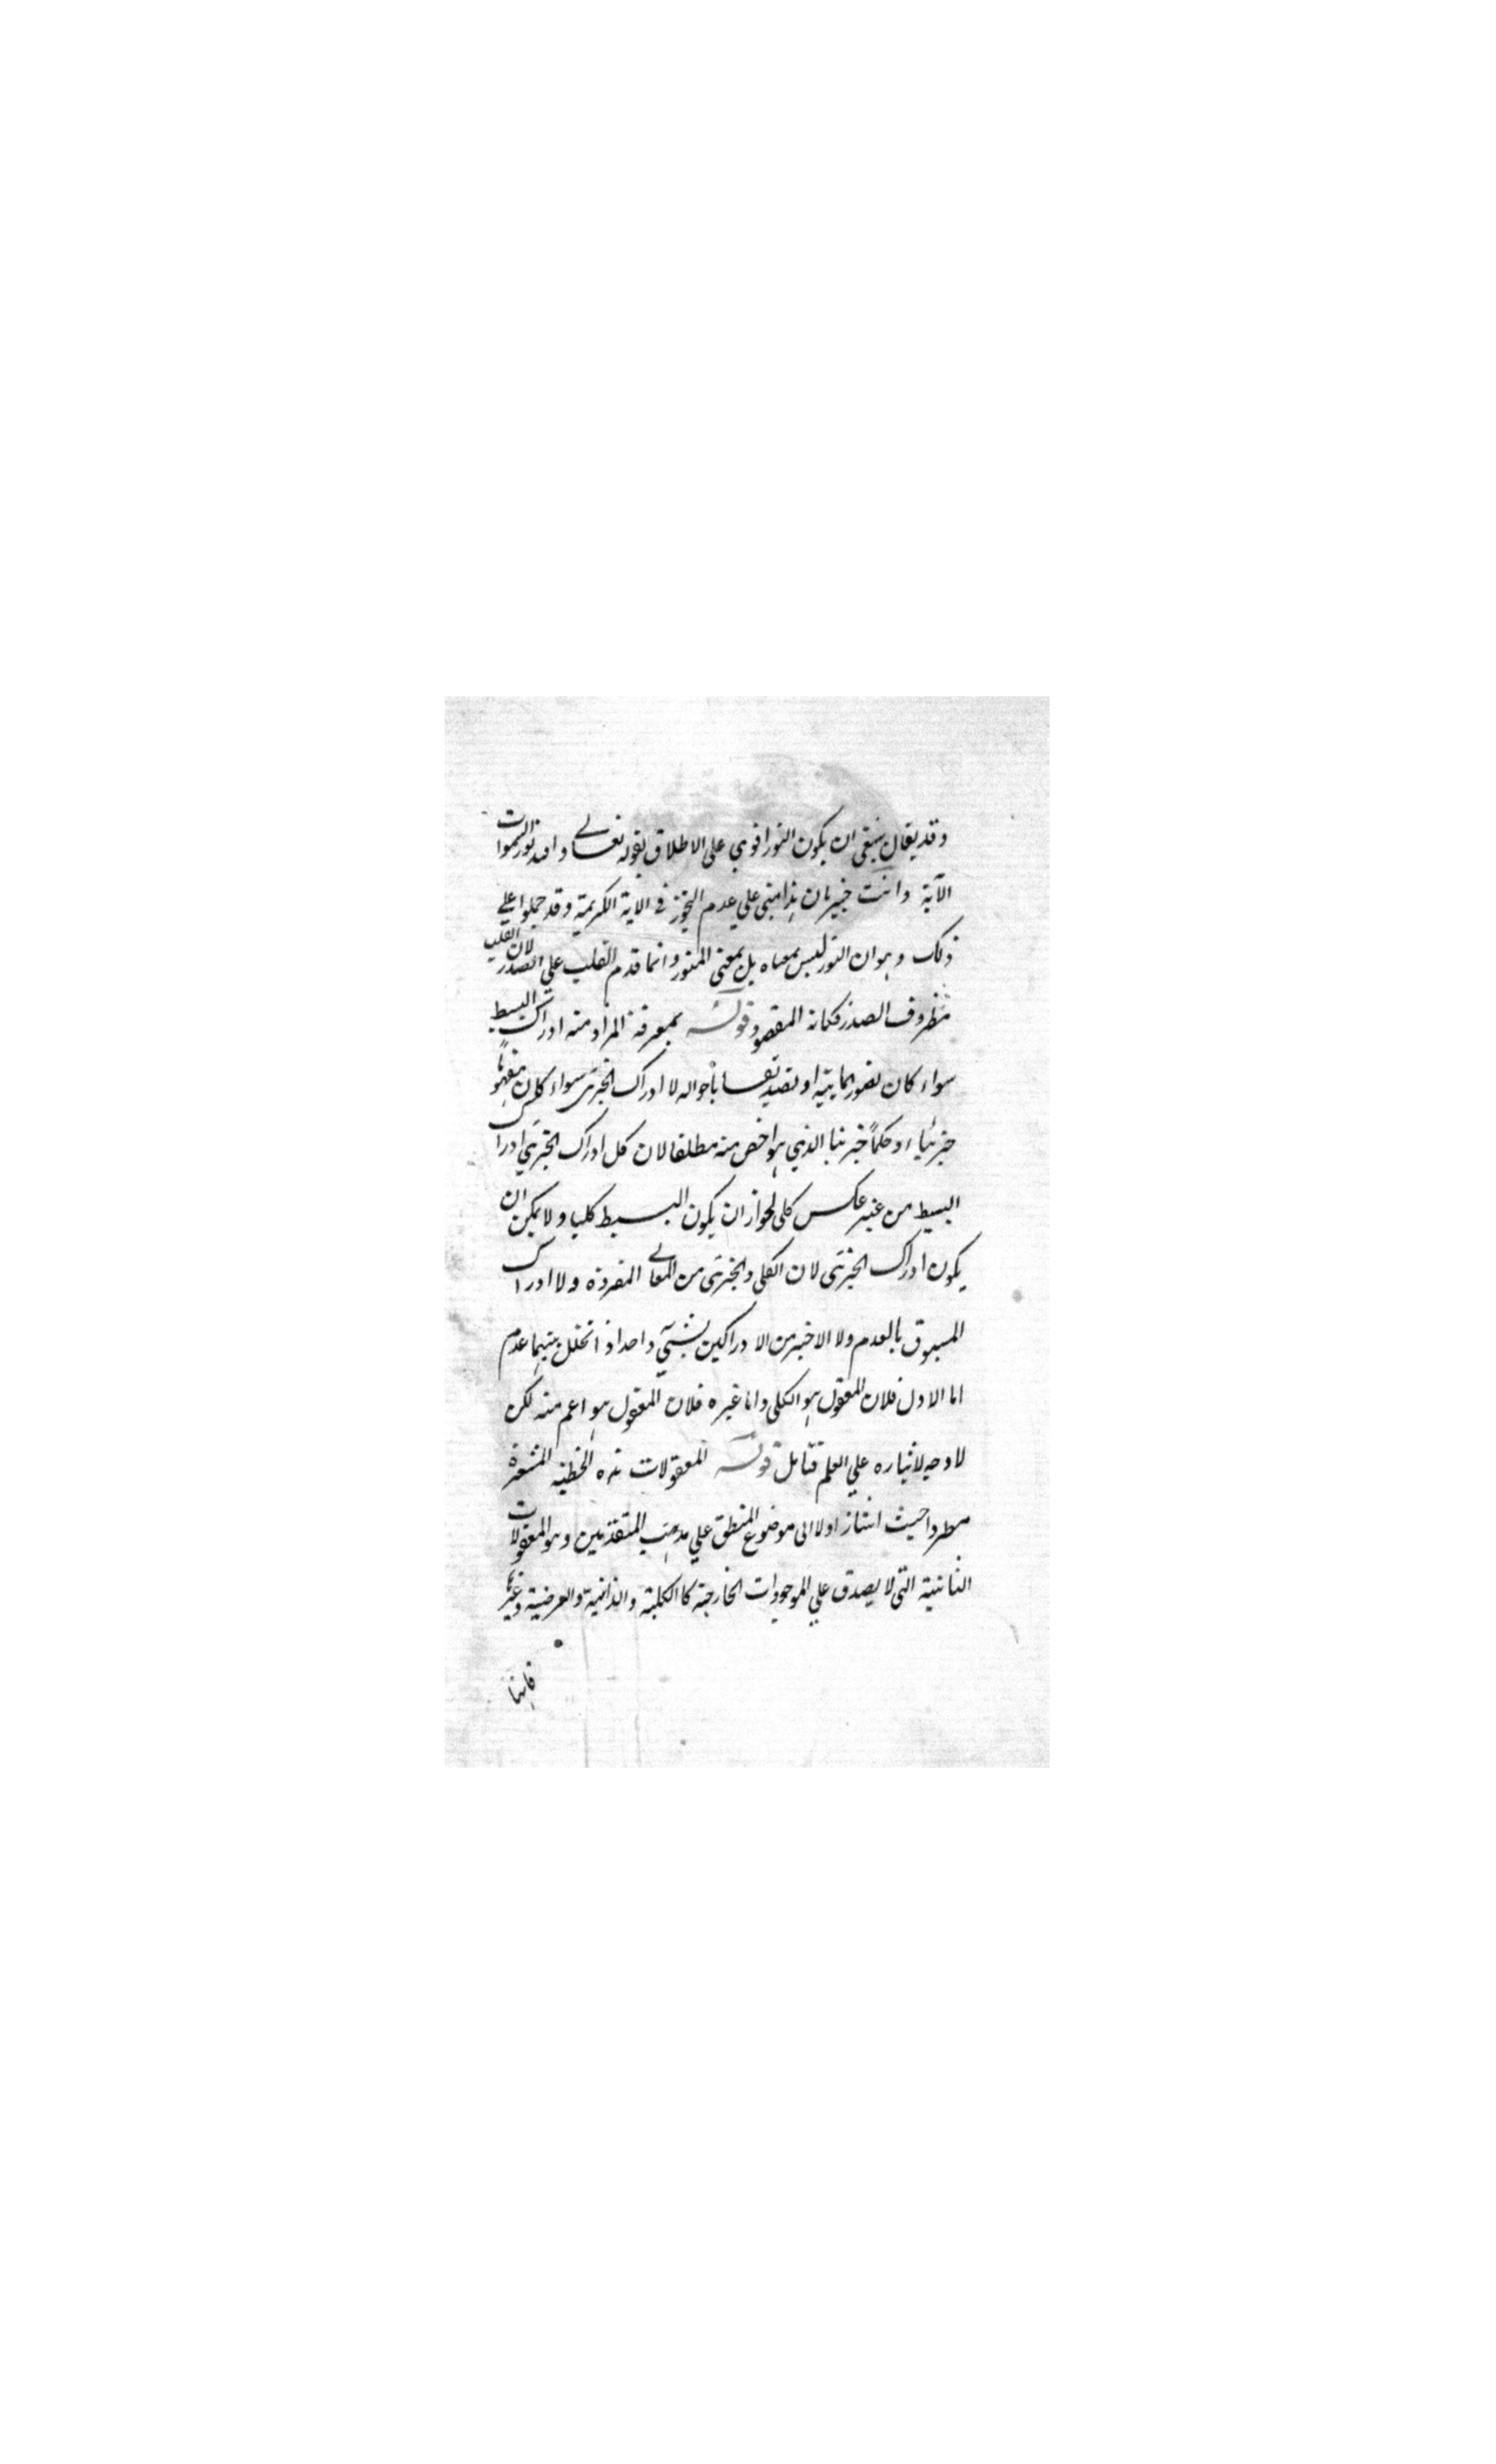 وقد يقال ينبغي ان يكون النور اقوي على الاطلاق لقوله تعالى والله نور السموات
الآية وانت خبير بان هذا مبني علي عدم التجوز في الاية الكريمة وقد حملوا علي
ذلك وهو ان النور ليس بمعناه بل بمعنى المنور وانما قدم القلب على الصدر لان القلب
مظروف الصدر فكانه المقصود قوله بمعرفة المراد منه ادراك البسيط
سواء كان تصور الماهية او تصديقا بأحواله لا ادراك الجزئى سواء كان مفهوما
جزئيا او حكماً جزئيا الذي هو اخص منه مطلقا لان كل ادراك الجزئي ادراك
البسيط من غير عكس كلى لجواز ان يكون البسيط كليا ولا يمكن ان
يكون ادراك الجزئى لان الكلى والجزئى من المعاني المفردة ولا ادراك
المسبوق بالعدم ولا الاخير من الادراكين لشيء واحد اذا تخلل بينهما عدم
اما الاول فلان المعقول هو الكلى واما غيره فلان المعقول هو اعم منه لكن
لا وجه لايثاره علي العلم فتأمل قوله المعقولات هذه الخطبة المشعرة
مطردا حيث اشار اولا الى موضوع المنطق علي مذهب المتقدمين وهو المعقولات
الثانية التى لا يصدق علي الموجودات الخارجية كالكلية والذاتية والعرضية وغيرها
فانها